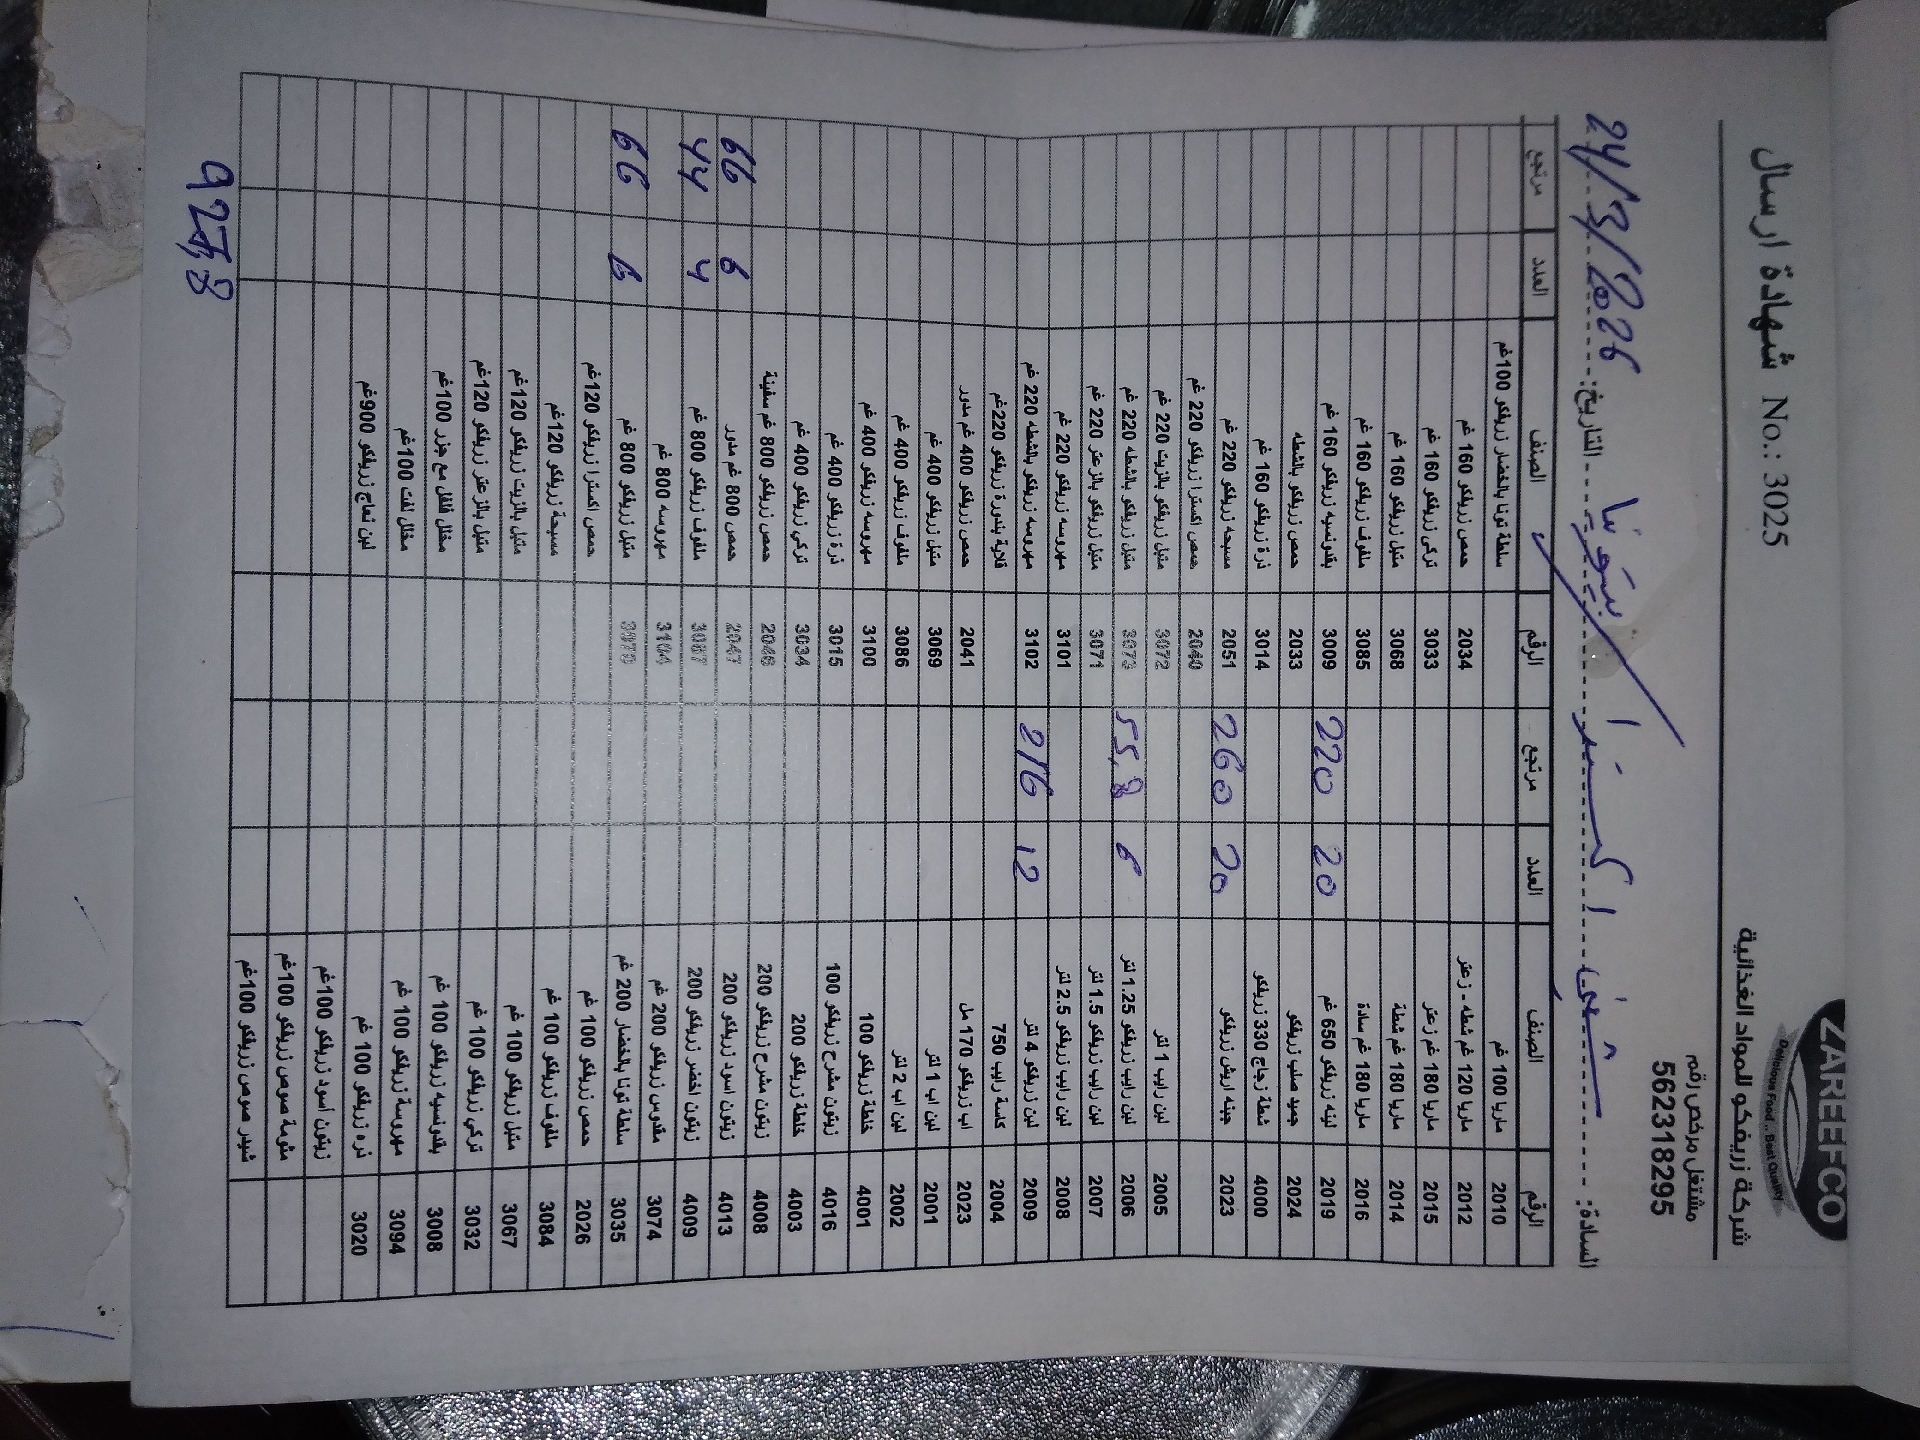 ZAREEFCO
Delicious Food .. Best Quality
شركة زريفكو للمواد الغذائية
شهادة ارسال No.: 3025
مشتغل مرخص رقم
562318295
السادة: التاريخ: 24/3/2026
الرقم الصنف العدد مرتجع الرقم الصنف العدد مرتجع
2010 ماريا 100 غم سلطة تونا بالخضار زريفكو 100غم
2012 ماريا 120 غم شطه - زعتر 2034 حمص زريفكو 160 غم
2015 ماريا 180 غم زعتر 3033 تركي زريفكو 160 غم
2014 ماريا 180 غم شطة 3068 متبل زريفكو 160 غم
2016 ماريا 180 غم سادة 3085 ملفوف زريفكو 160 غم
2019 لبنه زريفكو 650 غم 20 220 3009 بقدونسيه زريفكو 160 غم
2024 جميد صلب زريفكو 2033 حمص زريفكو بالشطه
4000 شطة زجاج 330 زريفكو 3014 ذرة زريفكو 160 غم
2023 جبنه اريش زريفكو 20 260 2051 مسبحه 220 غم
2040 حمص اكسترا زريفكو 220 غم
2005 لبن رايب 1 لتر 3072 متبل زريفكو بالزيت 220 غم
2006 لبن رايب زريفكو 1.25 لتر 6 55,8 3073 متبل زريفكو بالشطه 220 غم
2007 لبن رايب زريفكو 1.5 لتر 3071 متبل زريفكو بالزعتر 220 غم
2008 لبن رايب زريفكو 2.5 لتر 3101 مهروسه زريفكو 220 غم
2009 لبن زريفكو 4 لتر 12 216 3102 مهروسه زريفكو بالشطه 220 غم
2004 كاسة رايب 750 قلاية بندورة زريفكو 220غم
2023 اب زريفكو 170 مل 2041 حمص زريفكو 400 غم مدور
2001 لبن اب 1 لتر 3069 متبل زريفكو 400 غم
2002 لبن اب 2 لتر 3086 ملفوف زريفكو 400 غم
4001 خلطة زريفكو 100 3100 مهروسه زريفكو 400 غم
4016 زيتون مشرح زريفكو 100 3015 ذرة زريفكو 400 غم
4003 خلطة زريفكو 200 3034 تركي زريفكو 400 غم
4008 زيتون مشرح زريفكو 200 2046 حمص زريفكو 800 غم سفينة
4013 زيتون اسود زريفكو 200 2047 حمص 800 غم مدور 6 66
4009 زيتون اخضر زريفكو 200 3087 ملفوف زريفكو 800 غم 4 44
3074 مقدوس زريفكو 200 غم 3104 مهروسه 800 غم
3035 سلطة تونا بالخضار 200 غم 3070 متبل زريفكو 800 غم 6 66
2026 حمص زريفكو 100 غم حمص اكسترا زريفكو 120غم
3084 ملفوف زريفكو 100 غم مسبحة زريفكو 120غم
3067 متبل زريفكو 100 غم متبل بالزيت زريفكو 120غم
3032 تركي زريفكو 100 غم متبل بالزعتر زريفكو 120غم
3008 بقدونسيه زريفكو 100 غم مخلل فلفل مع جزر 100غم
3094 مهروسة زريفكو 100 غم مخلل لفت 100غم
3020 ذره زريفكو 100 غم لبن نعاج زريفكو 900غم
زيتون اسود زريفكو 100غم
مثومة صوص زريفكو 100غم
شبيدر صوص زريفكو 100غم